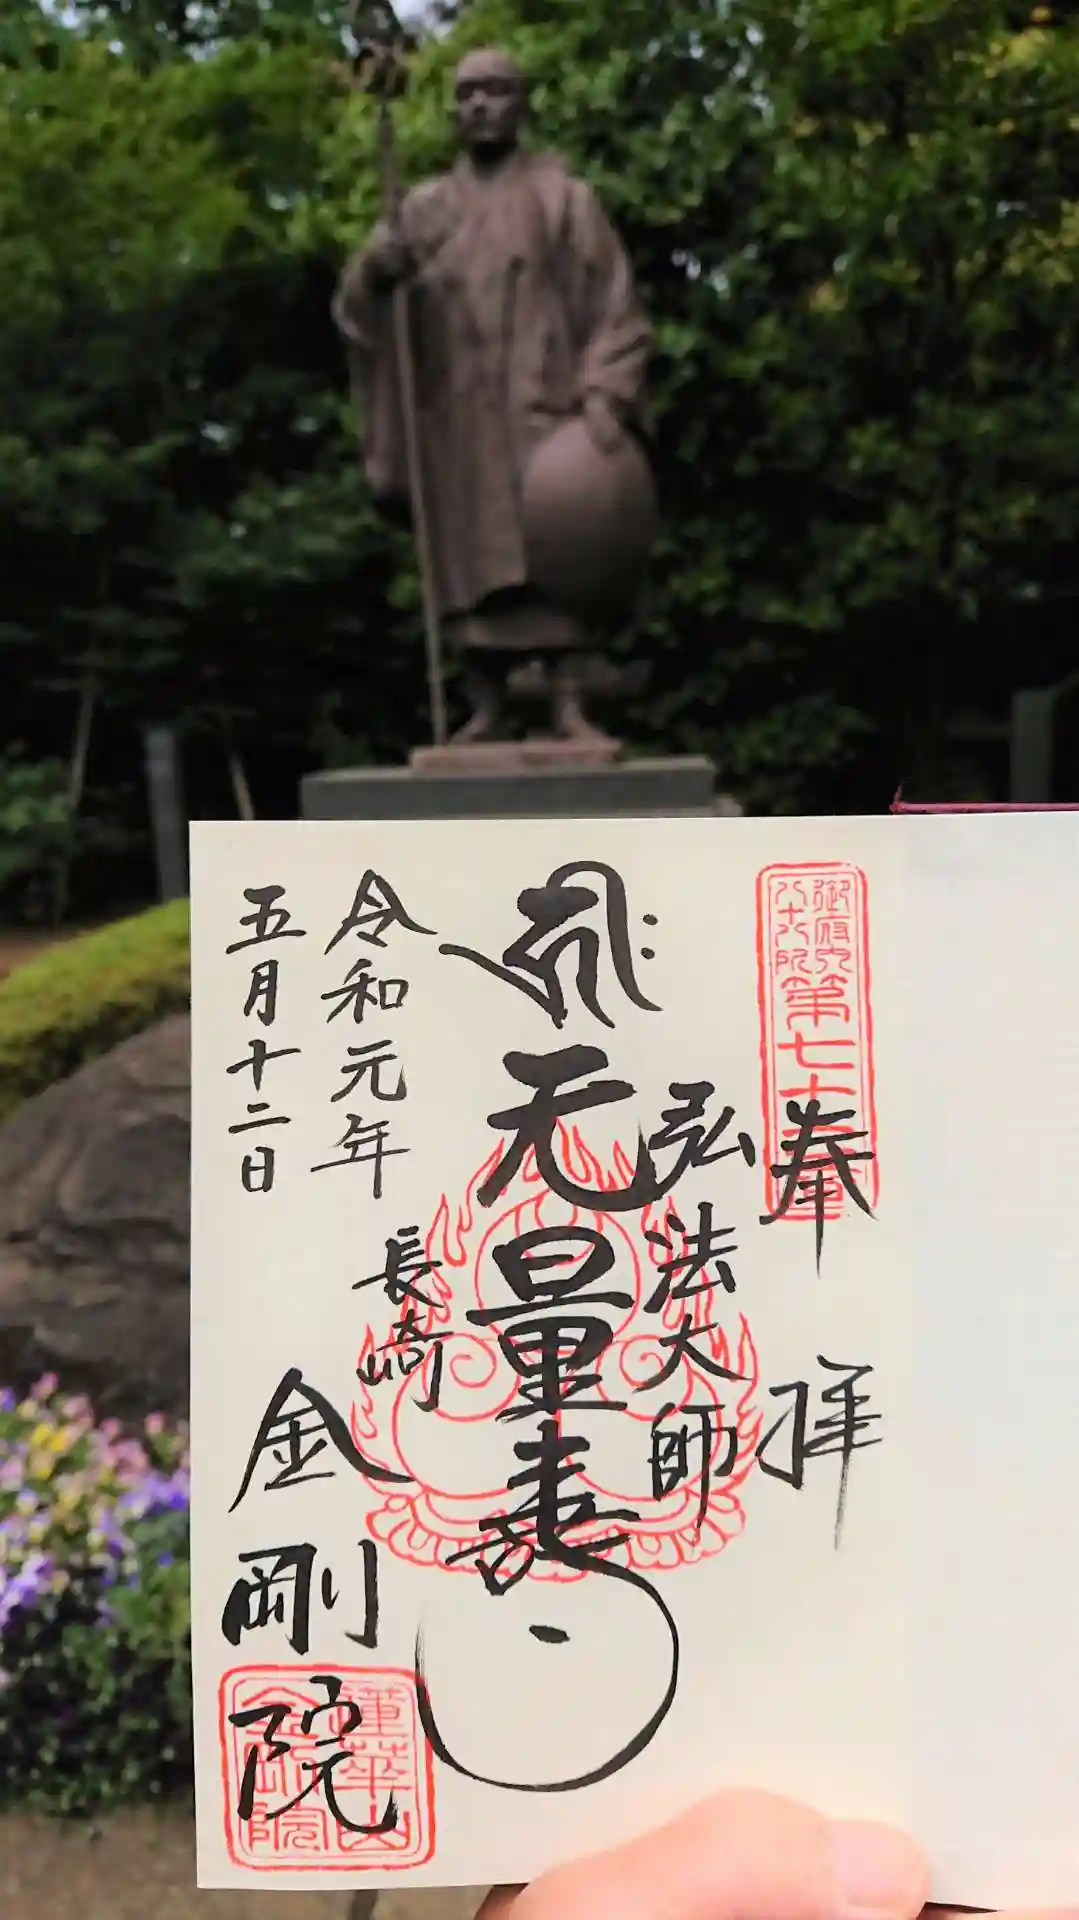 奉拝
弘法大師
无量寿
令和元年
五月十二日
長崎
金剛院
御府内
八十八ヶ所
第七十六番
蓮華山
金剛院